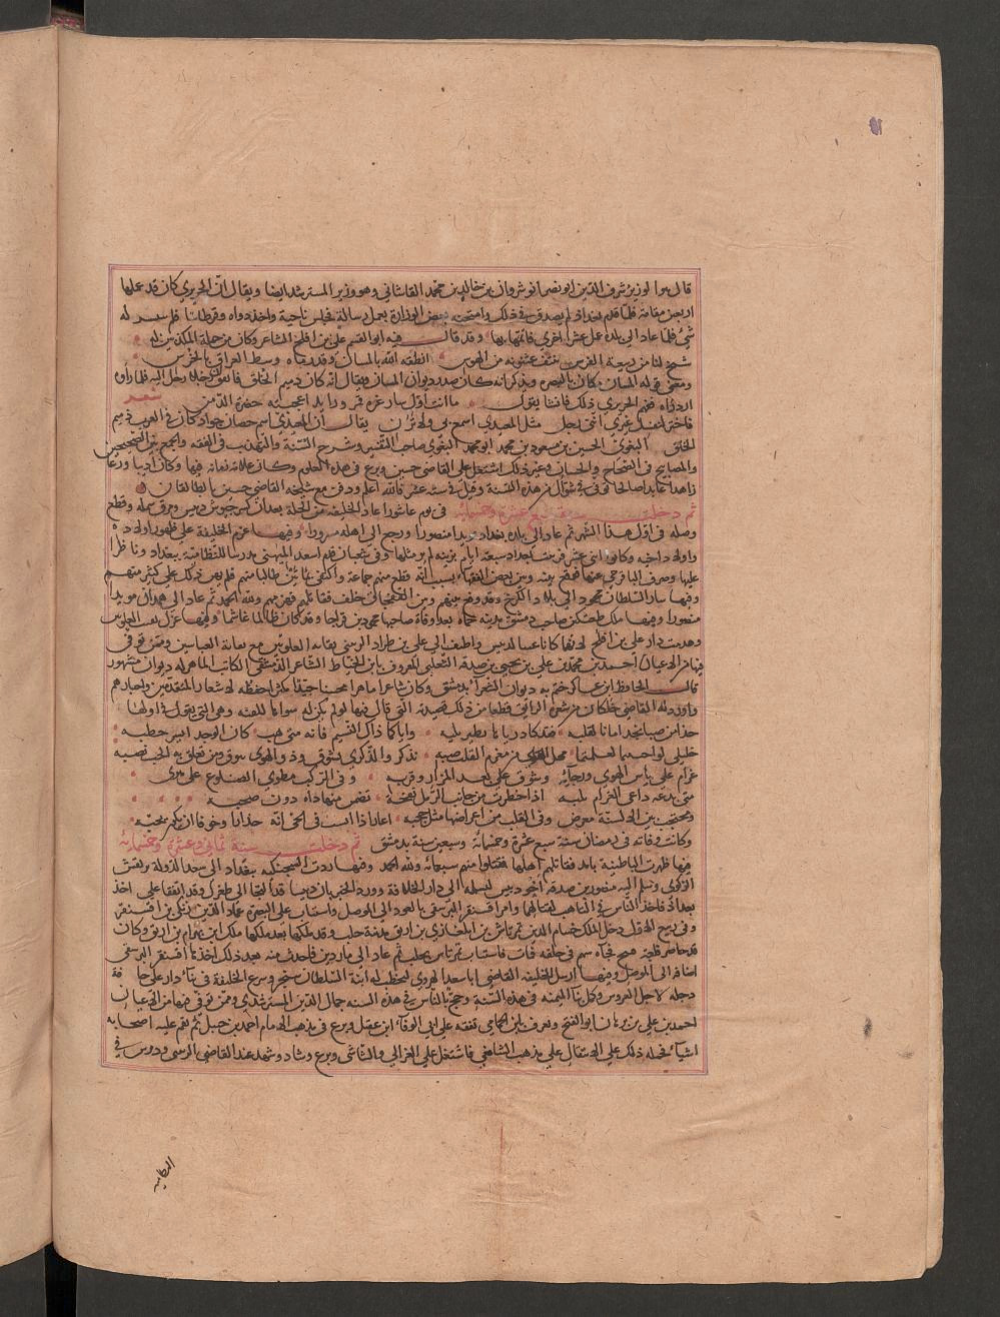 قال هو الوزير شرف الدين ابو نصر انوشروان بن خالد بن محمد القاشاني وهو وزير المسترشد ايضا ويقال ان الحريري كان قد عملها
اربعين مقامة فلما قدم بغداد لم يصدق في ذلك وامتحنه بعض الوزارة بعمل رسالة فجلس ناحية واخذ دواه وقرطاسا فلم له
شئ فلما عاد الى بلده عمل عشرا اخرى فاتمها بها وقد قال فيه ابو القسم علي بن افلح الشاعر وكان من جملة المكذبين له
شيخ لنا من ربيعة الفرس ينتف عثنونه من الهوس انطقه الله بالمشان وقد رماه وسط العراق بالخرس
ومعنى قوله المشان مكان بالبصره وذكر انه كان صدر ديوان المشان ويقال انه كان دميم الخلق فاتفق ان رجلا رحل اليه فلما راه
ازدراه ففهم الحريري ذلك فانشا يقول ما انت اول سار غره قمر ورايد اعجبته خضرة الدمن شعر
فاختر لنفسك غيري انني رجل مثل المعيدي اسمع بي ولا ترن يقال ان المعيدي اسم حصان جواد كان في العرب دميم
الخلق البغوي الحسين بن مسعود بن محمد ابو محمد البغوي صاحب التفسير وشرح السنة والتهذيب في الفقه والجمع بين الصحيحين
والمصابيح في الصحاح والحسان وغير ذلك اشتغل على القاضي حسين وبرع في هذه العلوم وكان علامة زمانه فيها وكان دينا ورعا
زاهدا عابدا صالحا توفي في شوال من هذه السنة وقيل في سنة عشر فالله اعلم ودفن مع شيخه القاضي حسين بالطالقان
ثم دخلت سنة سبع عشرة وخمسمائة في يوم عاشورا عاد الخليفة من الحلة بعد ان كسر جيوش دبيس ومزق شمله وقطع
وصله في اول هذا الشهر ثم عاد الى بلده بغداد مويدا منصورا ورجع الى اهله مسرورا وفيها عزم الخليفة على طهور اولاده
واولاد اخيه وكانوا اثني عشر فزينت بغداد سبعة ايام بزينة لم ير مثلها وفي شعبان قدم اسعد الميهني مدرسا للنظامية ببغداد وناظرا
عليها وصرف الباقرحي عنها فوقع بينه وبين بعض الفقهاء بسبب انه قطع منهم جماعة واكتفى بمائتين طالبا منهم فلم يهن ذلك على كثير منهم
وفيها سار السلطان محمود الى بلاد الكرج وقد وقع بينهم وبين القفجاق خلف فقاتلهم فهزمهم ولله الحمد ثم عاد الى همدان مويدا
منصورا وفيها ملك طغتكين صاحب دمشق مدينة حماه بعد وفاة صاحبها محمود بن قراجا وقد كان ظالما غاشما وفيها عزل نقيب العلويين
وهدمت دار علي بن افلح لانهما كانا عينا لدبيس واضيف الى علي بن طراد الزينبي نقابة العلويين مع نقابة العباسيين وممن توفي
فيها من الاعيان احمد بن محمد بن علي بن يحيى بن صدقة التغلبي المعروف بابن الخياط الشاعر الدمشقي الكاتب الماهر له ديوان مشهور
قال الحافظ ابن عساكر ختم به ديوان الشعراء بدمشق وكان شاعرا ماهرا محسنا جيدا مكثرا لحفظه لاشعار المتقدمين واخبارهم
واورد له القاضي بن خلكان من شعره الرائق قطعا من ذلك قصيدته التي قال فيها لو لم يكن له سواها لكفته وهي التي يقول في اولها
خذا من صبا نجد امانا لقلبه فقد كاد رياها يطير بلبه واياكما ذاك النسيم فانه متى هب كان الوجد ايسر خطبه
خليلي لو احببتما لعلمتما محل الهوى من مغرم القلب صبه تذكر والذكرى تشوق وذو الهوى يتوق ومن تعلق به الحب نصبه
غرام على ياس الهوى ورجائه وشوق على بعد المزار وقربه وفي الركب مطوي الضلوع على جوى
متى يدعه داعي الغرام يلبه اذا خطرت من جانب الرمل نفحة تضمن منها داه دون صحبه
ومحتجب بين الاسنة معرض وفي القلب من اعراضها مثل حجبه اغار اذا انست في الحي انه حذارا وخوفا ان يكون لحبه
وكانت وفاته في رمضان سنة سبع عشرة وخمسمائة وسبعين سنة بدمشق ثم دخلت سنة ثماني وعشرة وخمسمائة
فيها ظهرت الباطنية بامد فقاتلهم اهلها فقتلوا منهم سبعمائة ولله الحمد وفيها ردت الشحنكية ببغداد الى سعد الدولة برنقش
الزكوي وسلم اليه منصور بن صدقه اخو دبيس ليسلمه الى دار الخلافة وورد الخبر بان دبيسا قد التجا الى طغرل وقد اتفقا على اخذ
بغداد فاخذ الناس في التاهب لقتالهما وامر اقسنقر البرسقي بالعود الى الموصل واستناب على البصره عماد الدين زنكي بن اقسنقر
وفي ربيع الاول دخل الملك حسام الدين تمرتاش بن ايلغازي بن ارتق مدينة حلب وقد ملكها بعد ملكها ملك ابن بهرام بن ارتق وكان
قد حاصر قلعة منبج فجاه سهم في حلقه فمات فاستناب تمرتاش بحلب ثم عاد الى ماردين فاخذت منه بعد ذلك اخذها اقسنقر البرسقي
اضافها الى الموصل وفيها ارسل الخليفة القاضي ابا سعد الهروي ليخطب له ابنة السلطان سنجر وشرع الخليفة في بناء دار على حافة
دجله لاجل العروس وكمل بنا المثمنه في هذه السنة وحج بالناس في هذه السنه جمال الدين المسترشدي وممن توفي فيها من الاعيان
احمد بن علي بن برهان ابو الفتح ويعرف بابن الحمامي تفقه على ابي الوفاء ابن عقيل وبرع في مذهب الامام احمد بن حنبل ثم نقم عليه اصحابه
اشيآء فحمله ذلك على الانتقال على مذهب الشافعي فاشتغل على الغزالي والشاشي وبرع وساد وشهد عند القاضي الزينبي ودرس في
النظاميه